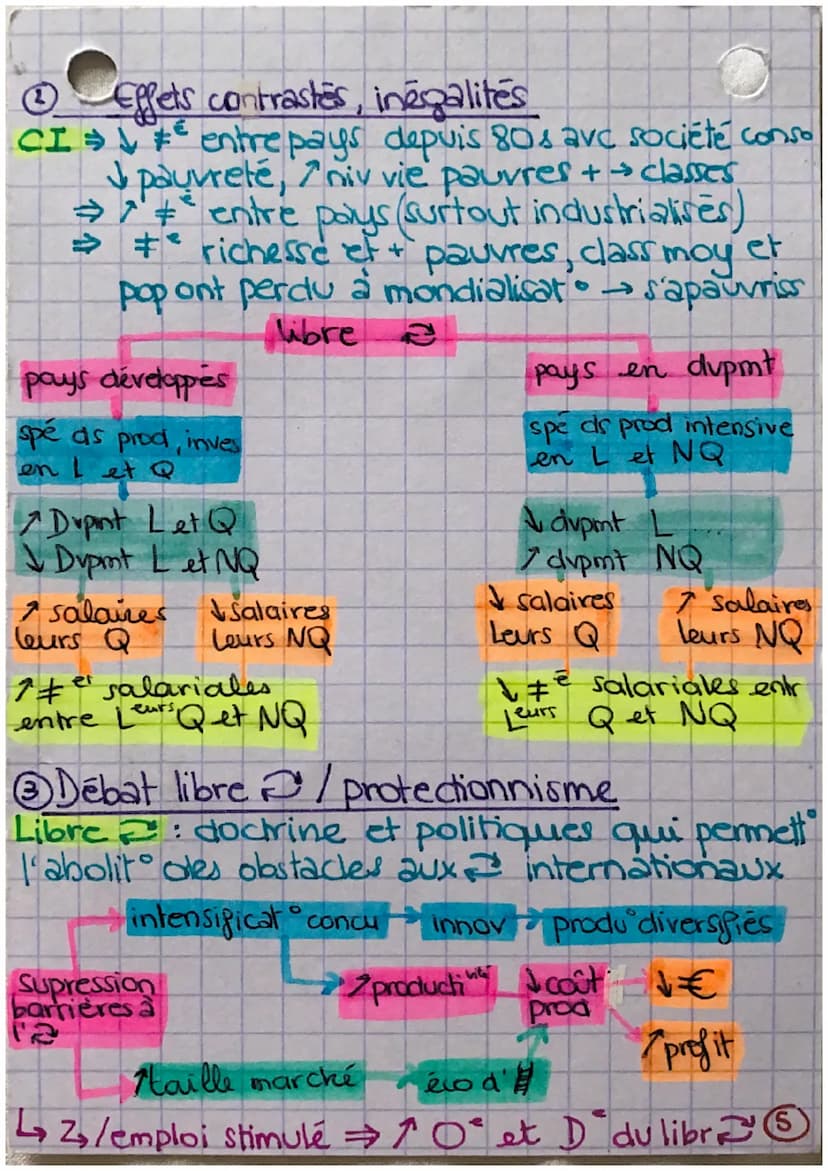 ② Effets contrastés, inégalités
CI ⇒ ↓ ≠é entre pays depuis 80s avc société conso
↓ pauvreté, ↗ niv vie pauvres + → classes
⇒ ↗ ≠é entre pays (surtout industrialisés)
⇒ ≠é richesse et + pauvres, class moy et
pop ont perdu à mondialisat° → s'apauvriss
libre ⇄
pays développés
pays en dvpmt
spé ds prod, inves
en L et Q
spé ds prod intensive
en L et NQ
↗ Dvpmt L et Q
↓ Dvpmt L et NQ
↓ dvpmt L ....
↗ dvpmt NQ
↗ salaires
leurs Q
↓ salaires
Leurs NQ
↓ salaires
Leurs Q
↗ salaires
leurs NQ
↗ ≠és salariales
entre Leurs Q et NQ
↓ ≠é salariales entr
Leurs Q et NQ
③ Débat libre ⇄ / protectionnisme
Libre ⇄ : doctrine et politiques qui permett°
l'abolit° des obstacles aux ⇄ internationaux
intensificat° concu → innov → produ° diversfiés
supression
barrières à
l'⇄
↗ productivité
↓ coût
prod
↓ €
↗ profit
↑ taille marché → éco d'#
↳ Z/emploi stimulé ⇒ ↗ Oᵉ et Dᵉ du libr ⇄ ⑤